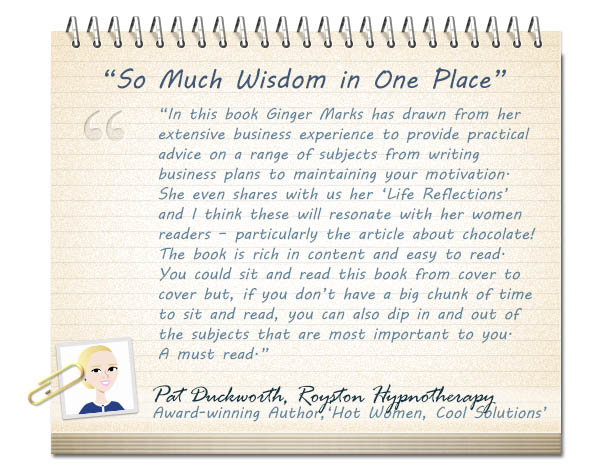 “So Much Wisdom in One Place”
“In this book Ginger Marks has drawn from her
extensive business experience to provide practical
advice on a range of subjects from writing
business plans to maintaining your motivation.
She even shares with us her ‘Life Reflections’
and I think these will resonate with her women
readers – particularly the article about chocolate!
The book is rich in content and easy to read.
You could sit and read this book from cover to
cover but, if you don’t have a big chunk of time
to sit and read, you can also dip in and out of
the subjects that are most important to you.
A must read.”
Pat Duckworth, Royston Hypnotherapy
Award-winning Author,‘Hot Women, Cool Solutions’